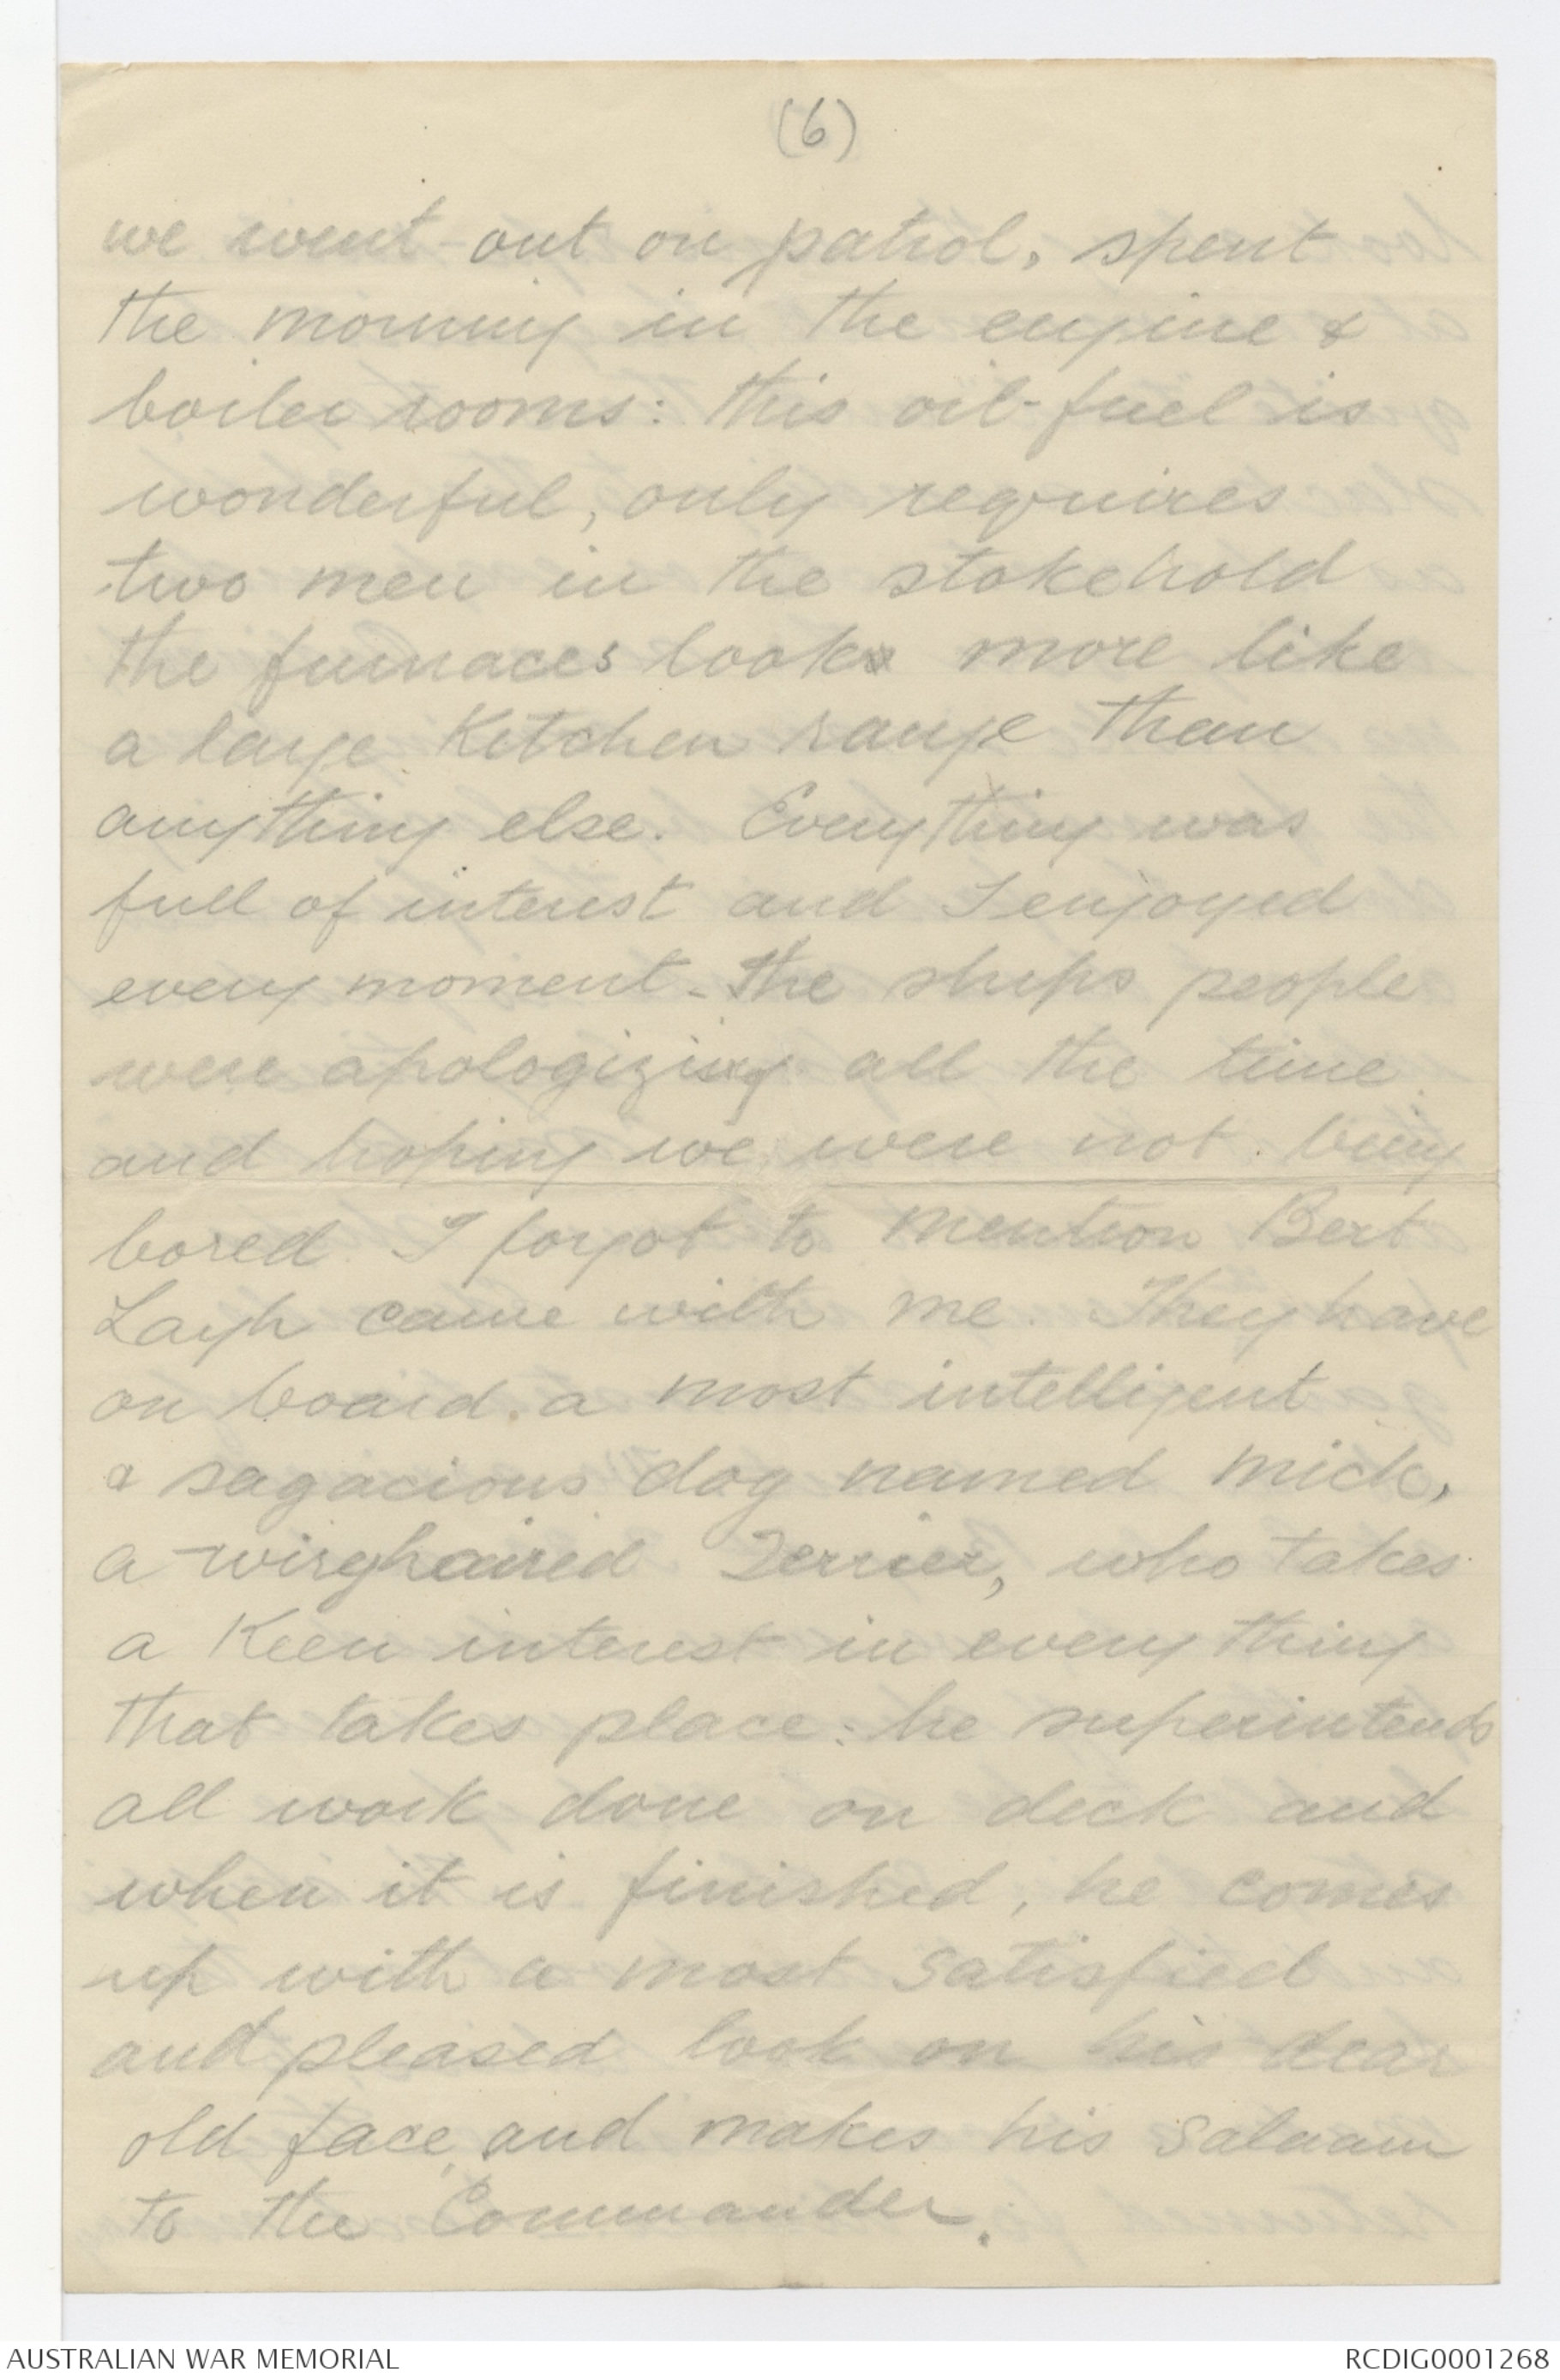 (6)
we went out on patrol, spent
the morning in the engine &
boiler rooms: this oil-fuel is
wonderful, only requires
two men in the stokehold
the furnaces look more like
a large Kitchen range than
anything else. Everything was
full of interest and I enjoyed
every moment - the ships people
were apologizing all the time
and hoping we were not being
bored I forgot to mention Bert
Layh came with me. They have
on board a most intelligent
& sagacious dog named Mick,
a wirehaired Terrier, who takes
a Keen interest in every thing
that takes place: he superintends
all work done on deck and
when it is finished, he comes
up with a most satisfied
and pleased look on his dear
old face, and makes his salaam
to the Commander.
AUSTRALIAN WAR MEMORIAL
RCDIG0001268